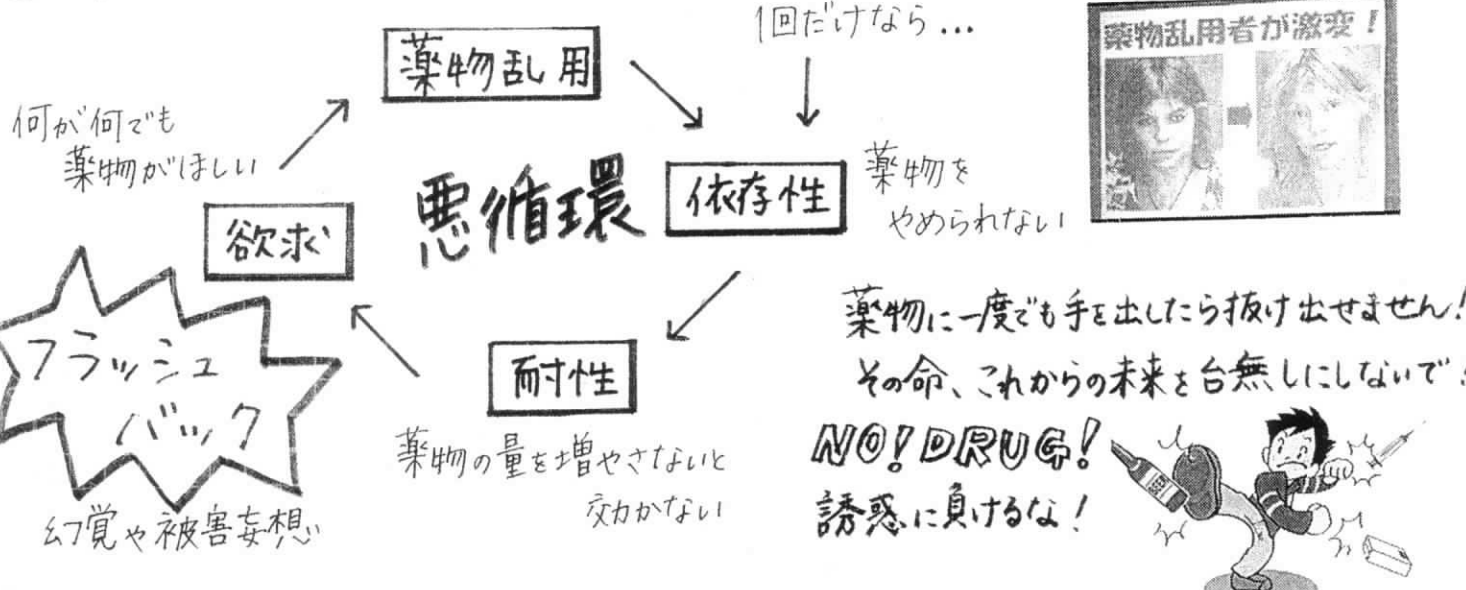 1回だけなら…
薬物乱用者が激変！
薬物乱用
何が何でも
薬物がほしい
悪循環
依存性
薬物を
やめられない
欲求
フラッシュ
バック
幻覚や被害妄想
耐性
薬物の量を増やさないと
効かない
薬物に一度でも手を出したら抜け出せません!
その命、これからの未来を台無しにしないで!
NO! DRUG!
誘惑に負けるな!